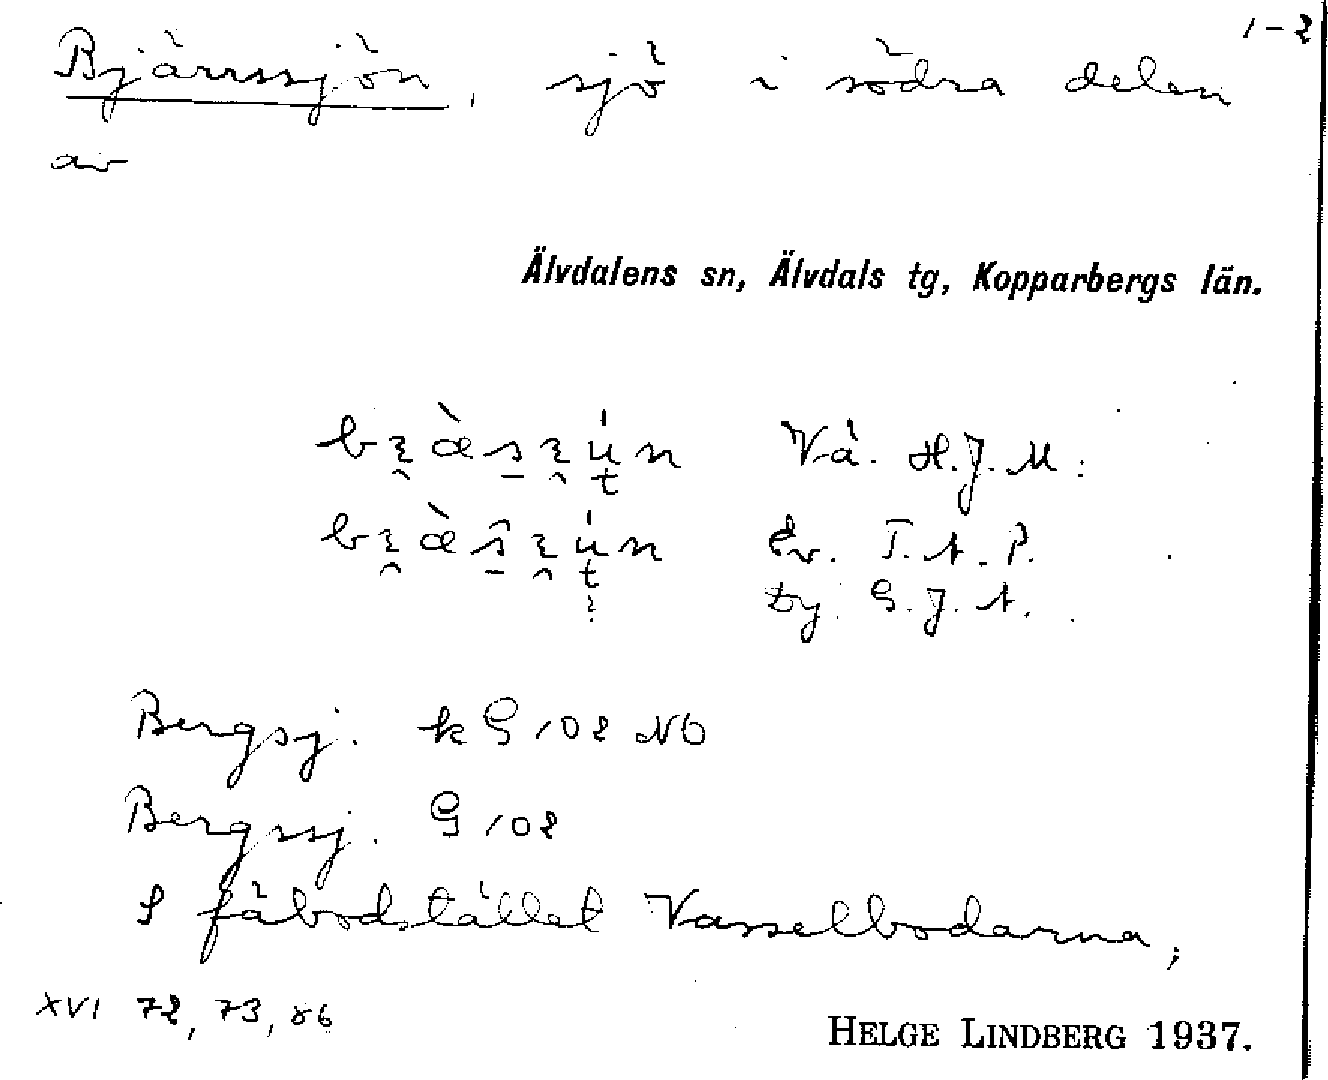 1-2
Bjärrssjön, sjö i södra delen
av
Älvdalens sn, Älvdals tg, Kopparbergs län.
Vå. H.J.M.
Ev. T.A.P.
by. G.J.A.
Bergsj. k G 102 NO
Bergssj. G 102
S fäbodstället Vasselbodarna,
XVI 72, 73, 86
HELGE LINDBERG 1937.